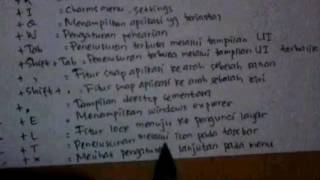 + I : Charms menu, settings
+ Q : Menampilkan aplikasi yg terinstal
+ W : Pengaturan pencarian
+ Tab : Penelusuran terbuka melalui tampilan UI
+ Shift + Tab : Penelusuran terbuka melalui tampilan UI
+ . : Fitur snap aplikasi ke arah sebelah kanan
+ Shift + . : Fitur snap aplikasi ke arah sebelah kiri
+ , : Tampilan desktop sementara
+ E : Menampilkan windows exporer
+ L : Fitur lock menuju ke pengunci layar
+ T : Penelusuran melalui icon pada tasbar
+ x : Melihat pengaturan lanjutan pada menu